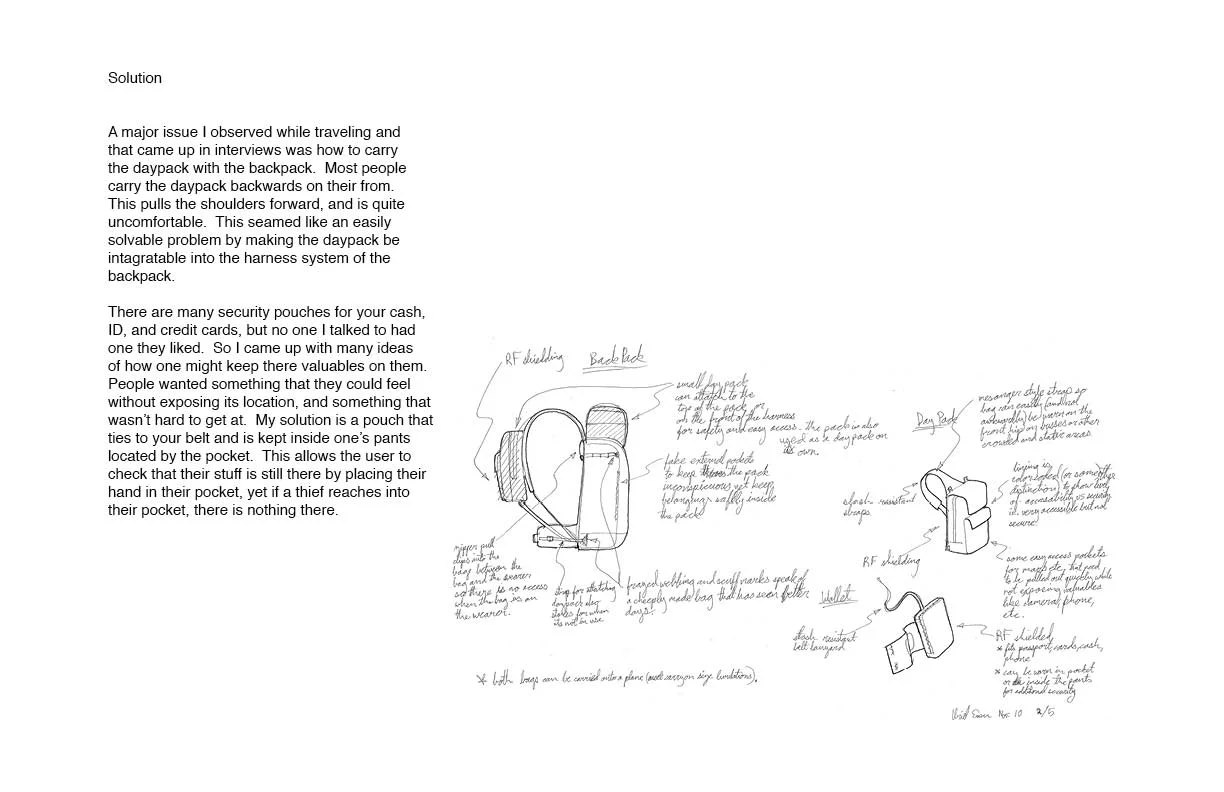 Solution
A major issue I observed while traveling and
that came up in interviews was how to carry
the daypack with the backpack.  Most people
carry the daypack backwards on their from.
This pulls the shoulders forward, and is quite
uncomfortable.  This seamed like an easily
solvable problem by making the daypack be
intagratable into the harness system of the
backpack.
There are many security pouches for your cash,
ID, and credit cards, but no one I talked to had
one they liked.  So I came up with many ideas
of how one might keep there valuables on them.
People wanted something that they could feel
without exposing its location, and something that
wasn't hard to get at.  My solution is a pouch that
ties to your belt and is kept inside one's pants
located by the pocket.  This allows the user to
check that their stuff is still there by placing their
hand in their pocket, yet if a thief reaches into
their pocket, there is nothing there.
RF shielding
BackPack
small day pack
can attatch to the
top of the pack or
on the front of the harness
for safety and easy access. the pack is also
used as a day pack on
its own.
fake external pockets
to keep the pack
inconspicuous yet keep
belongings safely inside
the pack
zipper pull
clips into the
bag between the
bag and the wearer
so there is no access
when the bag is on
the wearer.
strap for attatching
daypack also
stores for when
its not in use
frayed webbing and scuff marks speak of
a cheaply made bag that has seen better
days.
* both bags can be carried into a plane (meet carryon size limitations).
Day Pack
messanger style strap so
bag can easily (and not
awkwardly) be worn on the
front hip on busses or other
crowded and static areas
slash-resistant
straps
lining is
color coded (or some other
distinction) to show level
of accessability vs security
i.e. very accessible but not
secure.
RF shielding
some easy access pockets
for maps etc. that need
to be pulled out quickly while
not exposing valuables
like camera, phone,
etc.
Wallet
slash resistant
belt lanyard
RF shielded
* fits passport, cards, cash,
phone
* can be worn in pocket
or inside the pants
for additional security
Nov. 10 2/5